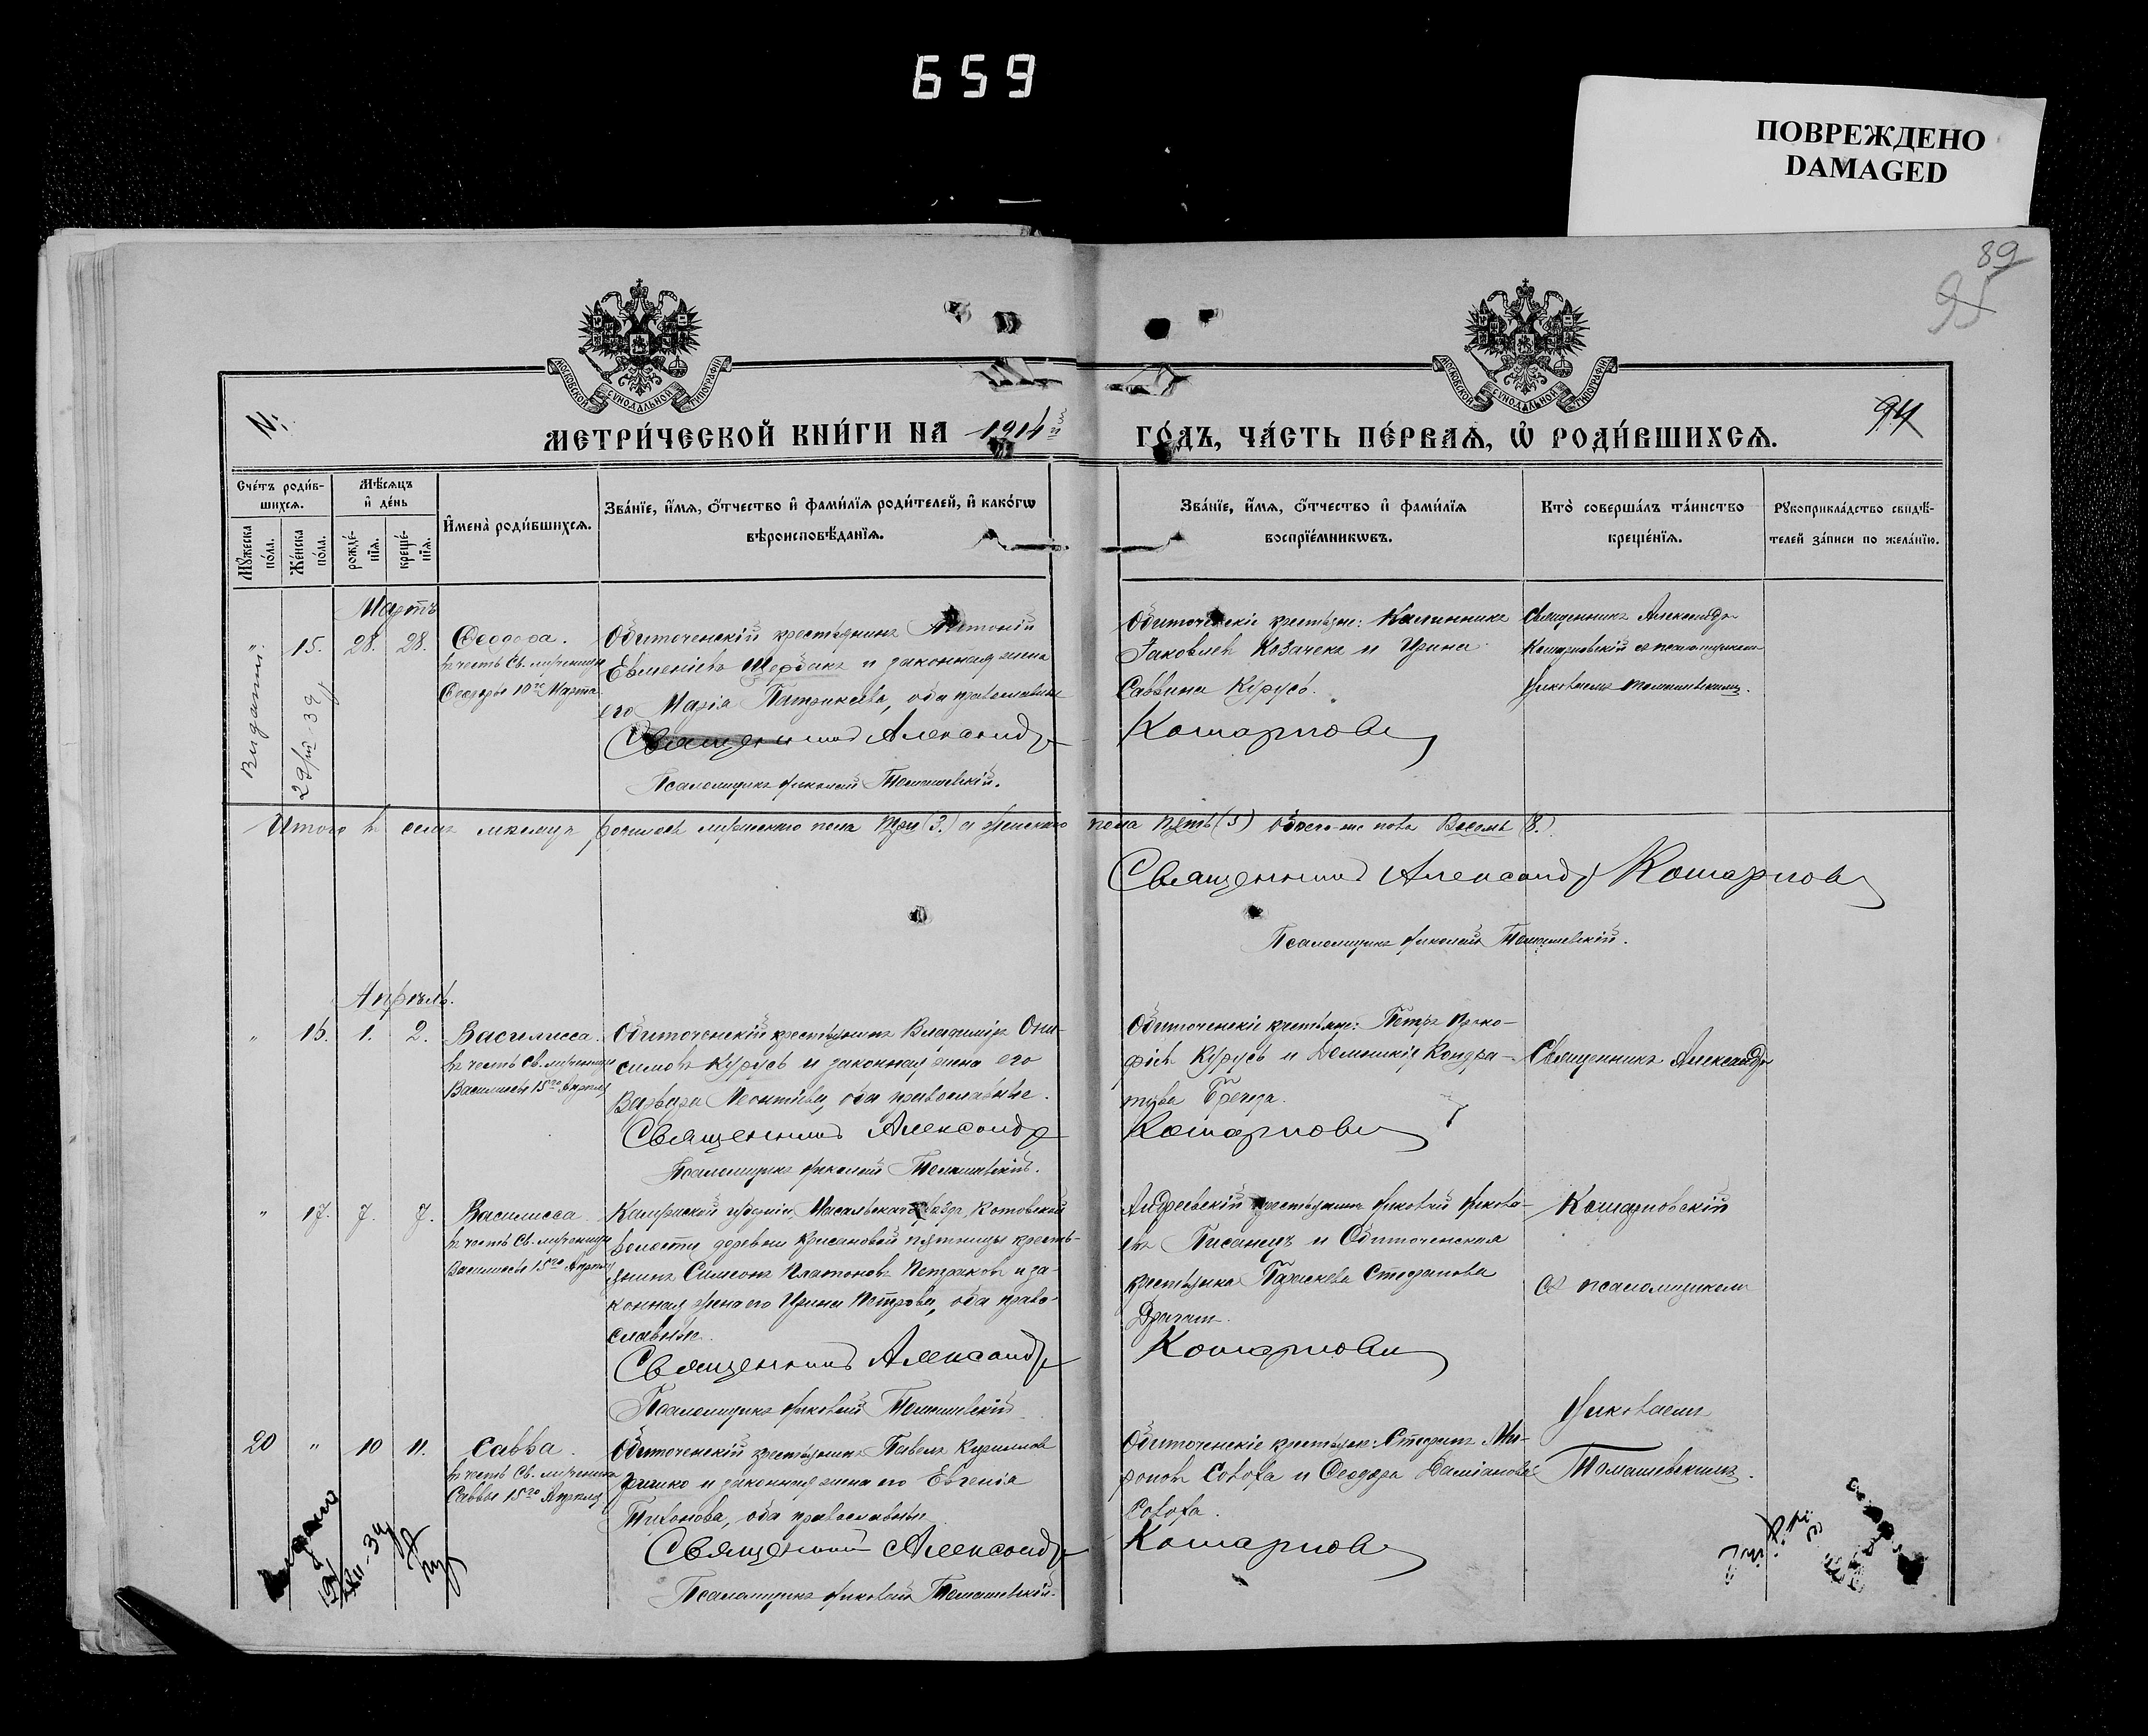 659
ПОВРЕЖДЕНО
DAMAGED
89
95
94
МОСКОВСКОЙ СѴНОДАЛЬНОЙ ТИПОГРАФІИ
МОСКОВСКОЙ СѴНОДАЛЬНОЙ ТИПОГРАФІИ
МЕТРИ́ЧЕСКОЙ КНИ́ГИ НА 1914й ГО́ДЪ, ЧА́СТЬ ПЕ́РВАѦ, Ѡ҆ РОДИ́ВШИХСѦ.
Сче́тъ роди́в-
шихсѧ.
Мꙋ́жеска по́ла.
Же́нска по́ла.
Мѣ́сѧцъ
и҆ де́нь
рожде́-
нїѧ.
креще́-
нїѧ.
И҆мена̀ роди́вшихсѧ.
Зва́нїе, и҆́мѧ, ѻ҆́тчество и҆ фами́лїѧ роди́телей, и҆ како́гѡ
вѣроисповѣ́данїѧ.
Зва́нїе, и҆́мѧ, ѻ҆́тчество и҆ фами́лїѧ
воспрїе́мникѡвъ.
Кто̀ соверша́лъ та́инство
креще́нїѧ.
Рꙋкоприкла́дство свидѣ́-
телей за́писи по жела́нїю.
Мартъ
" 15. 28. 28. Ѳеодора.
въ честь Св. мученицы
Ѳеодоры 10го Марта
Обиточенскій крестьянинъ Антоній
Евменіевъ Щербакъ и законная жена
его Марія Патрикіева, оба православные
Священникъ Александръ
Псаломщикъ Николай Томашевскій.
Обиточенскіе крестьяне: Каллиникъ
Іаковлевъ Козачекъ и Ирина
Саввина Курусь.
Кошарнов
Священникъ Александръ
Кошарновскій съ псаломщикомъ
Николаемъ Томашевскимъ.
Видано
29/III-39
Итого въ семъ мѣсяцѣ родилось мужескаго пола три (3.) а женскаго пола пять (5) обоего-же пола Восемь (8.)
Священникъ Александръ Кошарнов
Псаломщикъ Николай Томашевскій.
Апрѣль.
" 16. 1. 2. Василисса.
въ честь Св. мученицы
Василиссы 15го Апрѣля
Обиточенскій крестьянинъ Владиміръ Они-
симовъ Курусь и законная жена его
Варвара Леонтіева, оба православные.
Священникъ Александръ
Псаломщикъ Николай Томашевскій.
Обиточенскіе крестьяне: Петръ Проко-
фіевъ Курусь и Домникія Кондра-
тіева
Кошарнов
Священникъ Александръ
" 17. 7. 7. Василисса
въ честь Св. мученицы
Василиссы 15го Апрѣля
Калужской губерніи, Масальскаго уѣзда, Котовской
волости деревни пятницы кресть-
янинъ Симеонъ Платоновъ Петраковъ и за-
конная жена его Ирина Петрова, оба право-
славные.
Священникъ Александръ
Псаломщикъ Николай Томашевскій
Андреевскій крестьянинъ Николай Никола-
евъ Писанецъ и Обиточенская
крестьянка Параскева Стефанова
Драган
Кошарнов
Кошарновскій
съ псаломщикомъ
Николаемъ
Томашевскимъ.
20 " 10 11. Савва.
въ честь Св. мученика
Саввы 15го Апрѣля
Обиточенскій крестьянинъ Павелъ Кирилловъ
и законная жена его Евгенія
Тихонова, оба православные
Священникъ Александръ
Псаломщикъ Николай Томашевскій.
Обиточенскіе крестьяне: Стефанъ Ми-
роновъ Солоха и Ѳеодора Даміанова
Солоха.
Кошарнов
Видано